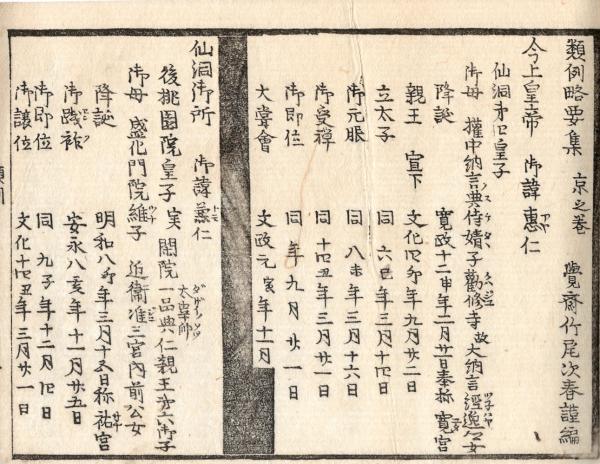 類例略要集 京之巻 覺齋竹尾次春謹編
今上皇帝 御諱惠仁
仙洞第四皇子
御母 權中納言典侍婧子 勸修寺故大納言經逸公女
降誕 寛政十二申年二月廿一日奉称寛宮
親王宣下 文化四卯年九月廿二日
立太子 同六巳年三月十四日
御元服 同八未年三月十六日
御受禅 同十四丑年三月廿一日
御即位 同年九月廿一日
大嘗會 文政元寅年十一月
仙洞御所 御諱兼仁
後桃園院皇子 実閑院一品太宰帥典仁親王第六御子
御母 盛化門院維子 近衛准三宮内前公女
降誕 明和八卯年三月十五日称祐宮
御践祚 安永八亥年十一月廿五日
御即位 同九子年十二月四日
御譲位 文化十四丑年三月廿一日